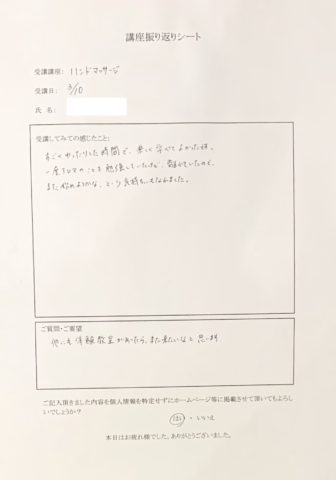 講座振り返りシート
受講講座: ハンドマッサージ
受講日: 3/10
氏 名:
受講してみての感じたこと:
すごくゆったりした時間で、楽しく学べてよかったです。
一度アロマのことも勉強していたけど、離れていたので、
また始めようかな、という気持ちにもなれました。
ご質問・ご要望
他にも体験教室があったら、また来たいなと思います
ご記入頂きました内容を個人情報を特定せずにホームページ等に掲載させて頂いてもよろし
いでしょうか?
はい ・ いいえ
本日はお疲れ様でした。ありがとうございました。